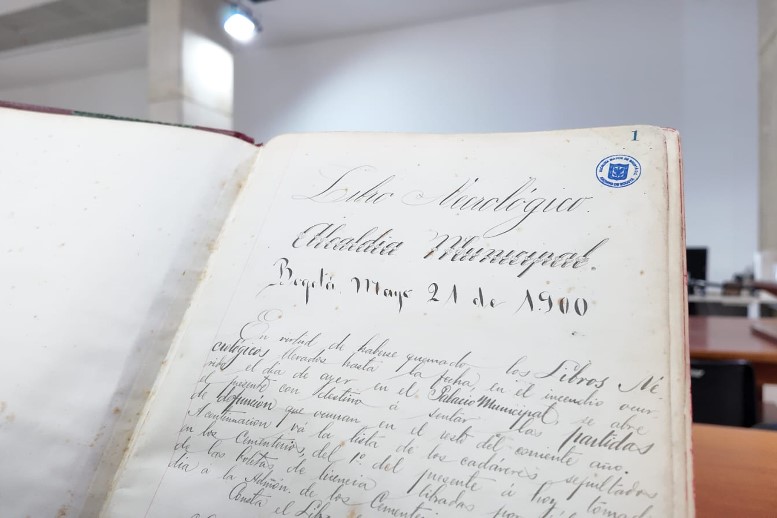 1
Libro Necrológico.
Alcaldia Municipal.
Bogotá Mayo 21 de 1900
En virtud de haberse quemado los Libros Ne-
crológicos llevados hasta la fecha, en el incendio ocur-
rido el dia de ayer en el Palacio Municipal, se abre
el presente con destino á sentar las partidas
de defunción que ocurran en el resto del corriente año.
A continuación vá la lista de los cadáveres sepultados
en los Cementerios, del 1º del presente á hoy, tomada
de las boletas de licencia libradas por
dia á la Admón. de los Cementerios
Consta el Libro